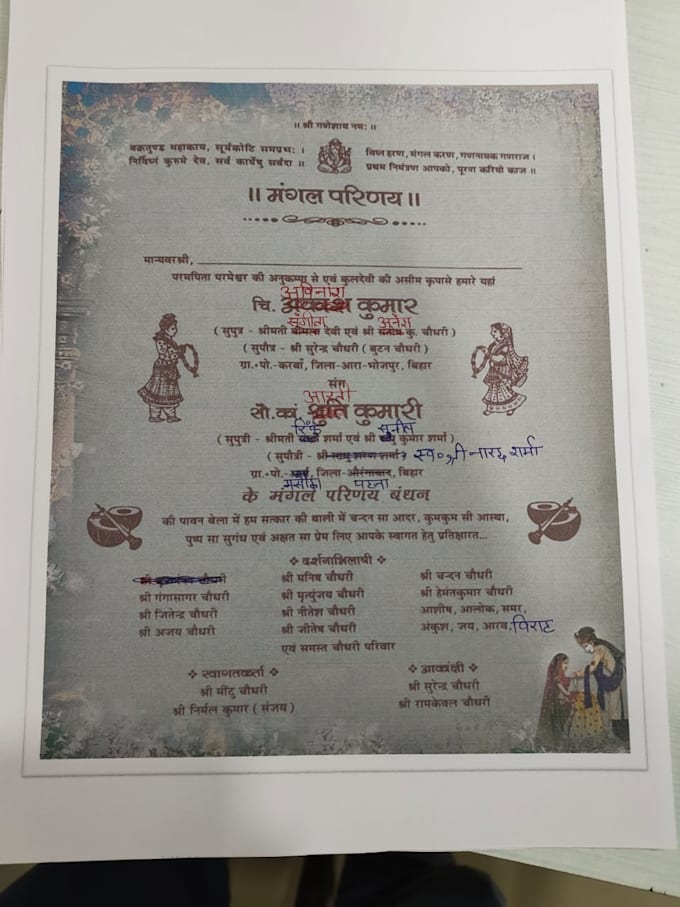 ॥ श्री गणेशाय नमः ॥
वक्रतुण्ड महाकाय, सूर्यकोटि समप्रभः ।
निर्विघ्नं कुरुमे देव, सर्व कार्येषु सर्वदा ॥
विघ्न हरण, मंगल करण, गणनायक गणराज ।
प्रथम निमंत्रण आपको, पूरण करियो काज ॥
॥ मंगल परिणय ॥
मान्यवरश्री,
परमपिता परमेश्वर की अनुकम्पा से एवं कुलदेवी की असीम कृपासे हमारे यहां
अविनाश
चि. कुमार
संगीता अनेश
( सुपुत्र - श्रीमती देवी एवं श्री कु. चौधरी )
( सुपौत्र - श्री सुरेन्द्र चौधरी ( बुटन चौधरी )
ग्रा.+पो.-करवाँ, जिला-आरा-भोजपुर, बिहार
संग
आरती
सौ.कां. श्रुति कुमारी
रिंकु सुनीष
( सुपुत्री - श्रीमती शर्मा एवं श्री कुमार शर्मा )
( सुपौत्री - श्री शरण शर्मा ) स्व० श्री नारद शर्मा
ग्रा.+पो.- जिला-औरंगाबाद, बिहार
पटना
के मंगल परिणय बंधन
की पावन बेला में हम सत्कार की थाली में चन्दन सा आदर, कुमकुम सी आस्था,
पुष्प सा सुगंध एवं अक्षत सा प्रेम लिए आपके स्वागत हेतु प्रतिक्षारत...
दर्शनाभिलाषी
चौधरी
श्री गंगासागर चौधरी
श्री जितेन्द्र चौधरी
श्री अजय चौधरी
श्री मनिष चौधरी
श्री मृत्युंजय चौधरी
श्री नीतेश चौधरी
श्री जीतेष चौधरी
श्री चन्दन चौधरी
श्री हेमंतकुमार चौधरी
आशीष, आलोक, समर,
अंकुश, जय, आरव, विराट
एवं समस्त चौधरी परिवार
स्वागतकर्ता
श्री मींटु चौधरी
श्री निर्मल कुमार ( संजय )
आकांक्षी
श्री सुरेन्द्र चौधरी
श्री रामकेवल चौधरी